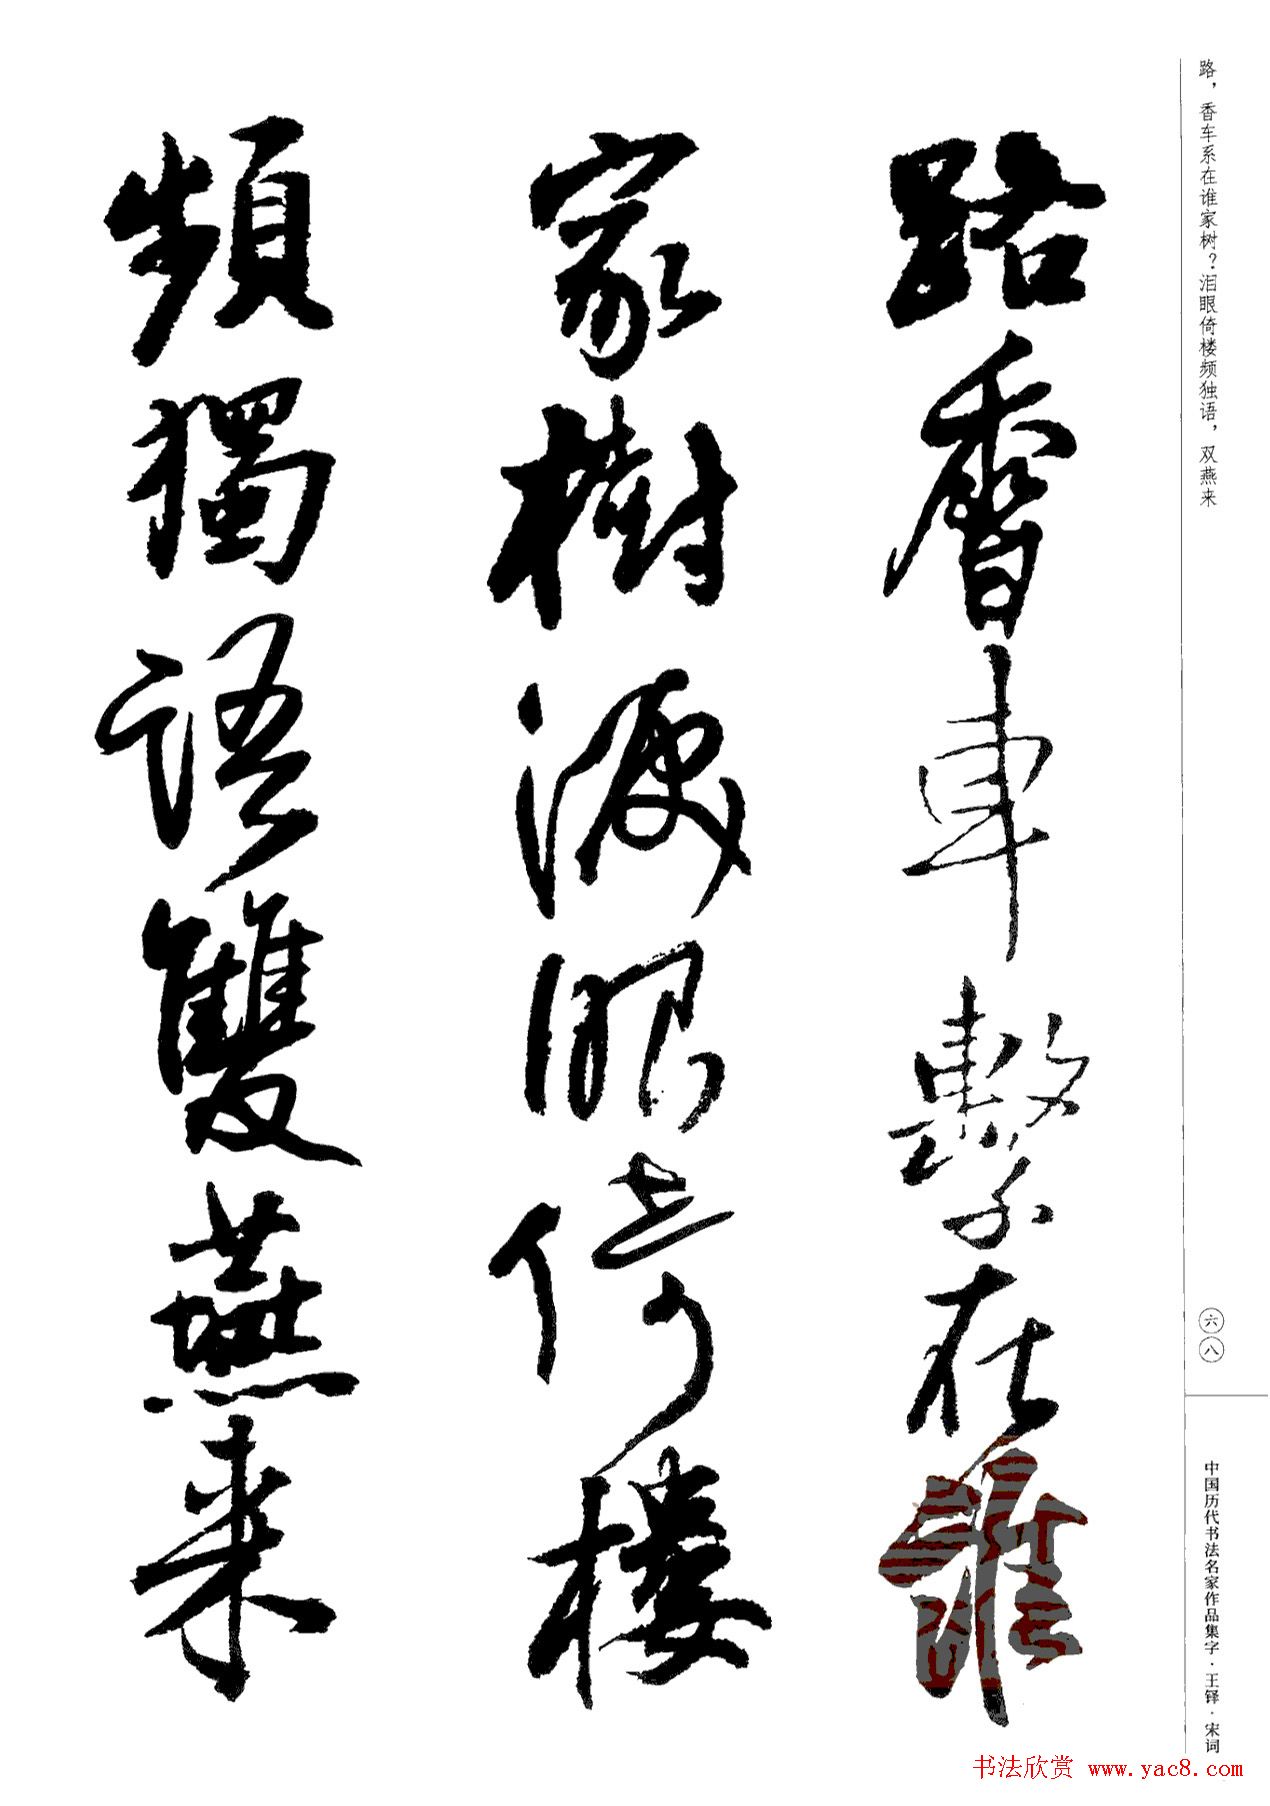 路，香车系在谁家树？泪眼倚楼频独语，双燕来
路香車繫在誰
家樹淚眼倚樓
頻獨語雙燕來
六八
中国历代书法名家作品集字·王铎·宋词
书法欣赏 www.yac8.com